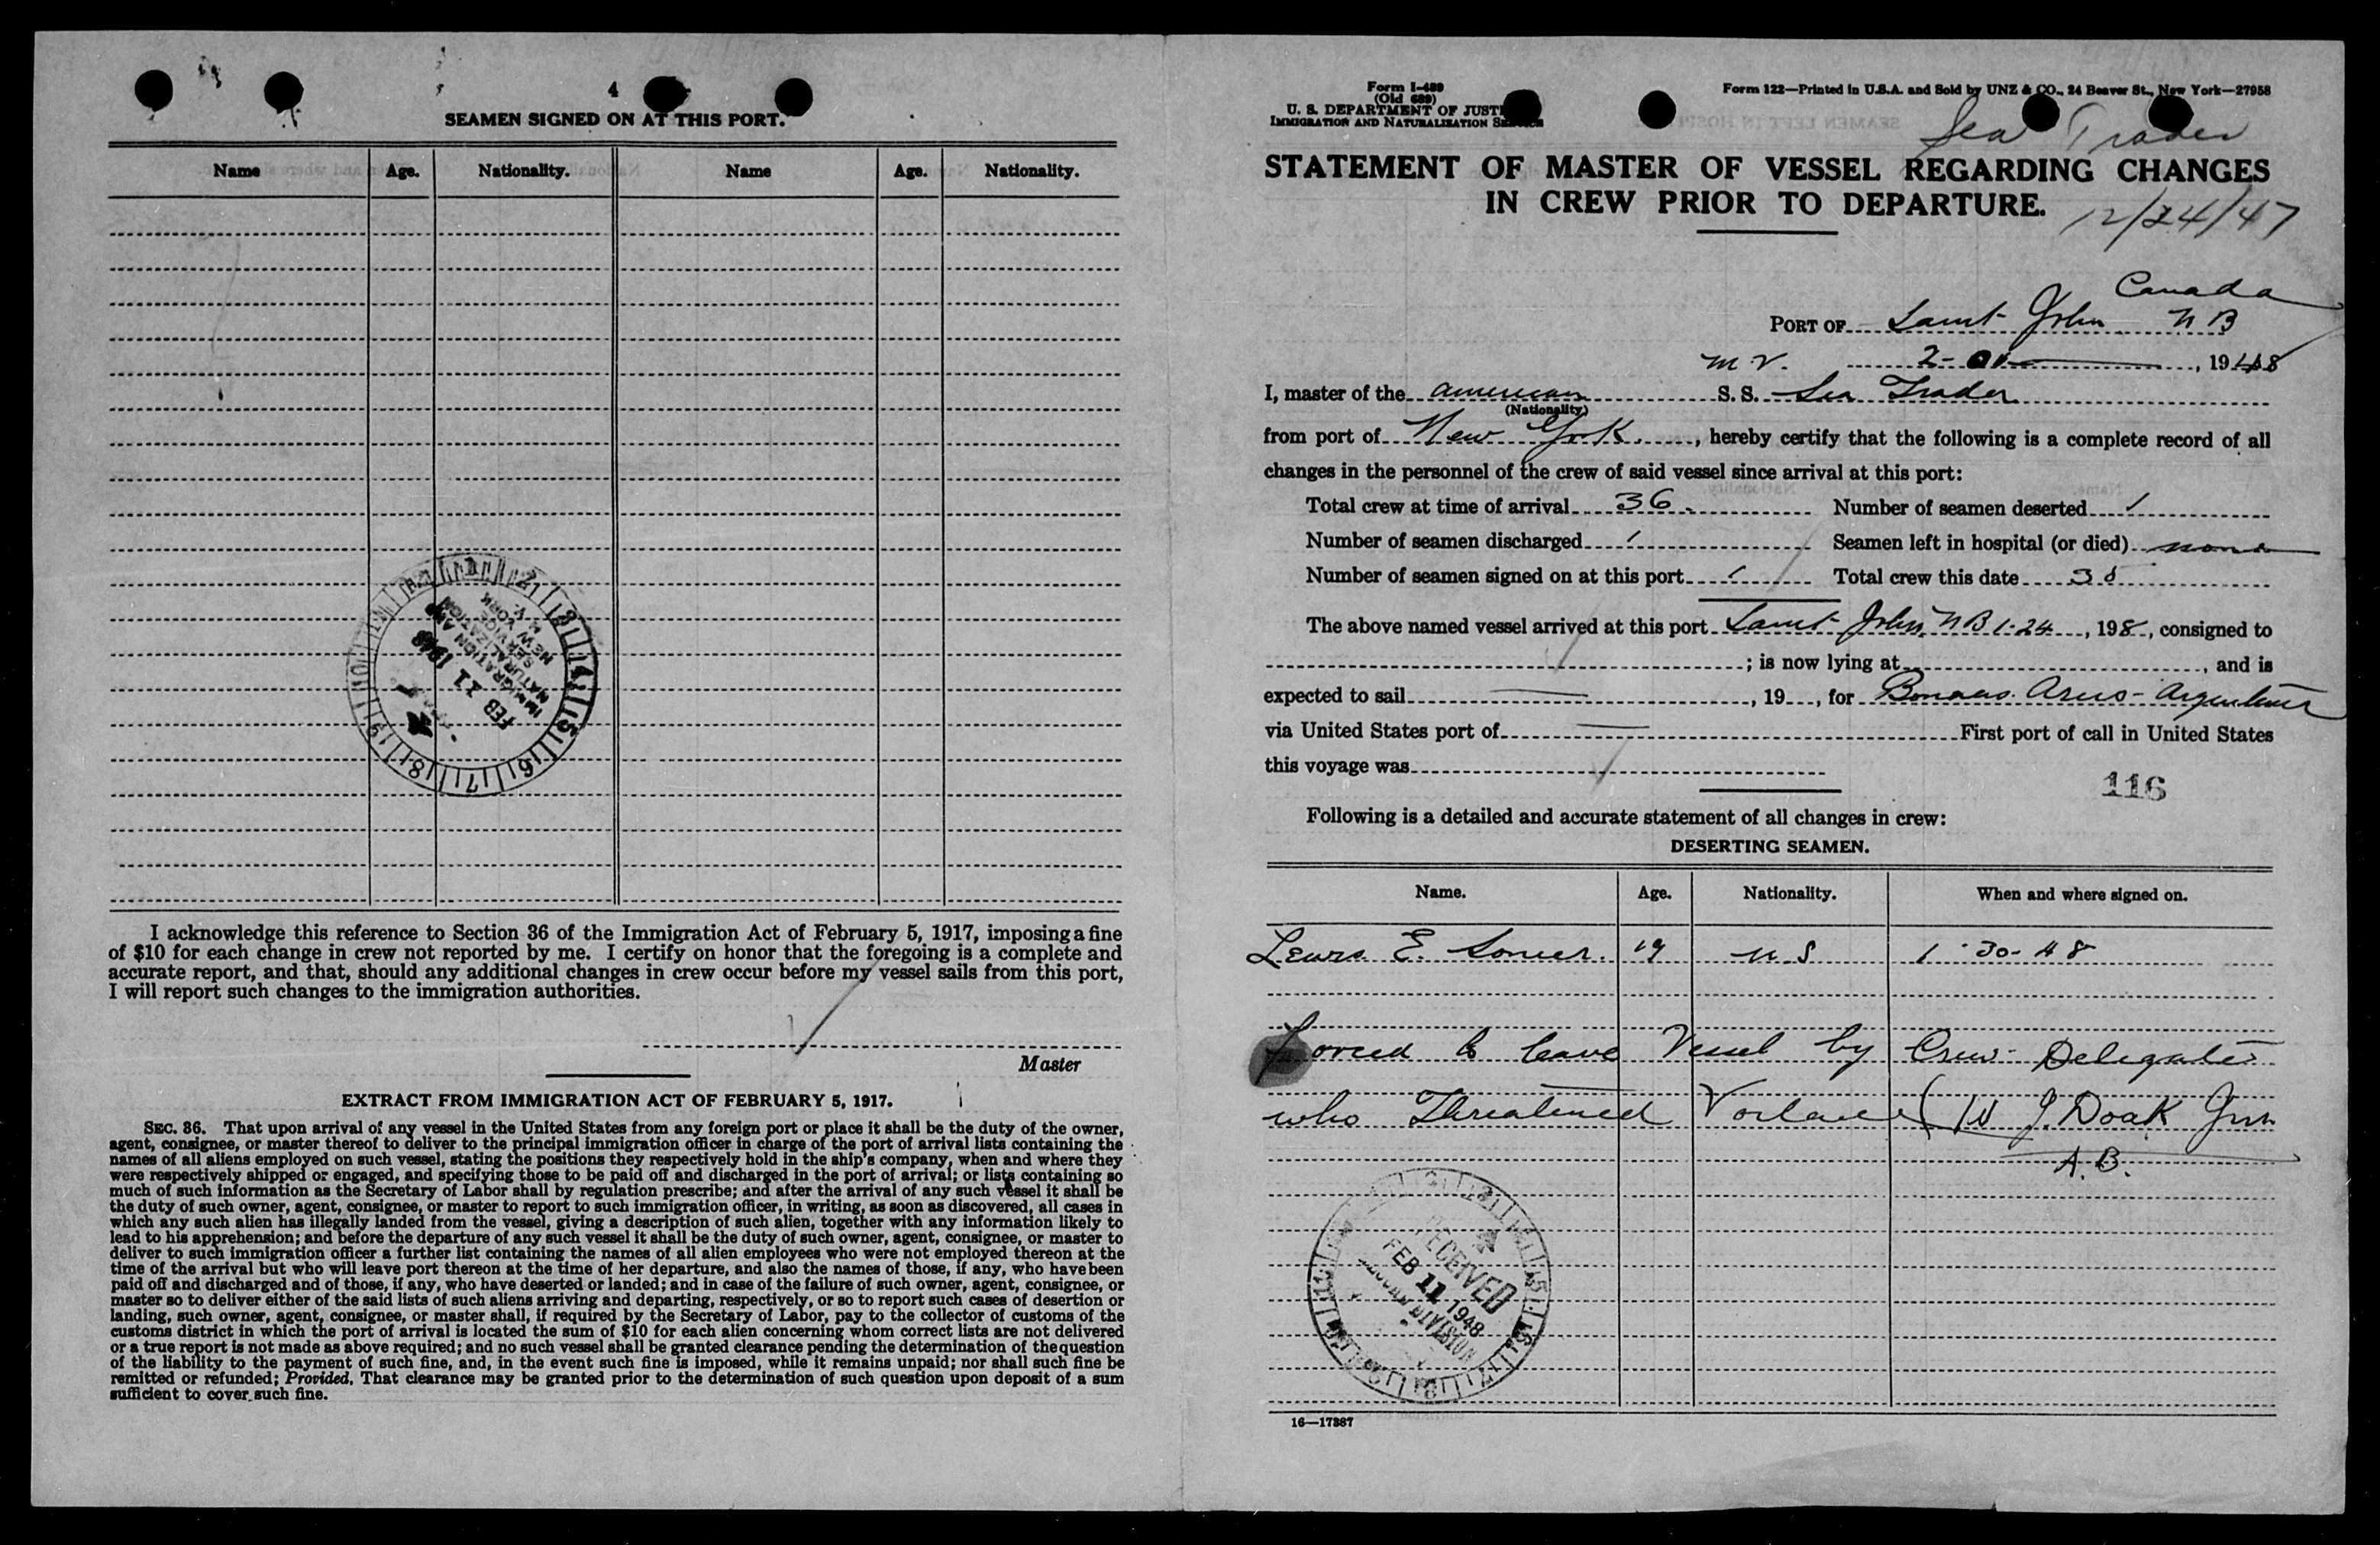 4
SEAMEN SIGNED ON AT THIS PORT.
Name Age. Nationality. Name Age. Nationality.
IMMIGRATION AND
NATURALIZATION
SERVICE
NEW YORK
N. Y.
FEB 11 1948
I acknowledge this reference to Section 36 of the Immigration Act of February 5, 1917, imposing a fine
of $10 for each change in crew not reported by me. I certify on honor that the foregoing is a complete and
accurate report, and that, should any additional changes in crew occur before my vessel sails from this port,
I will report such changes to the immigration authorities.
Master
EXTRACT FROM IMMIGRATION ACT OF FEBRUARY 5, 1917.
SEC. 36. That upon arrival of any vessel in the United States from any foreign port or place it shall be the duty of the owner,
agent, consignee, or master thereof to deliver to the principal immigration officer in charge of the port of arrival lists containing the
names of all aliens employed on such vessel, stating the positions they respectively hold in the ship's company, when and where they
were respectively shipped or engaged, and specifying those to be paid off and discharged in the port of arrival; or lists containing so
much of such information as the Secretary of Labor shall by regulation prescribe; and after the arrival of any such vessel it shall be
the duty of such owner, agent, consignee, or master to report to such immigration officer, in writing, as soon as discovered, all cases in
which any such alien has illegally landed from the vessel, giving a description of such alien, together with any information likely to
lead to his apprehension; and before the departure of any such vessel it shall be the duty of such owner, agent, consignee, or master to
deliver to such immigration officer a further list containing the names of all alien employees who were not employed thereon at the
time of the arrival but who will leave port thereon at the time of her departure, and also the names of those, if any, who have been
paid off and discharged and of those, if any, who have deserted or landed; and in case of the failure of such owner, agent, consignee, or
master so to deliver either of the said lists of such aliens arriving and departing, respectively, or so to report such cases of desertion or
landing, such owner, agent, consignee, or master shall, if required by the Secretary of Labor, pay to the collector of customs of the
customs district in which the port of arrival is located the sum of $10 for each alien concerning whom correct lists are not delivered
or a true report is not made as above required; and no such vessel shall be granted clearance pending the determination of the question
of the liability to the payment of such fine, and, in the event such fine is imposed, while it remains unpaid; nor shall such fine be
remitted or refunded; Provided, That clearance may be granted prior to the determination of such question upon deposit of a sum
sufficient to cover such fine.
Form I-489
(Old 689)
U. S. DEPARTMENT OF JUSTICE
IMMIGRATION AND NATURALIZATION SERVICE
Form 122—Printed in U.S.A. and Sold by UNZ & CO., 24 Beaver St., New York—27958
Sea Trader
STATEMENT OF MASTER OF VESSEL REGARDING CHANGES
IN CREW PRIOR TO DEPARTURE.
12/24/47
Canada
PORT OF Saint John N B
M V. 2- , 1948
I, master of the American S. S. Sea Trader
(Nationality)
from port of New York, hereby certify that the following is a complete record of all
changes in the personnel of the crew of said vessel since arrival at this port:
Total crew at time of arrival 36. Number of seamen deserted 1
Number of seamen discharged 1 Seamen left in hospital (or died) none
Number of seamen signed on at this port 1 Total crew this date 35
The above named vessel arrived at this port Saint John, N B 1-24, 198, consigned to
; is now lying at , and is
expected to sail , 19 , for Bonaas Aries - Argentina
via United States port of First port of call in United States
this voyage was
116
Following is a detailed and accurate statement of all changes in crew:
DESERTING SEAMEN.
Name. Age. Nationality. When and where signed on.
E. 19 U S 1-30-48
Forced to leave Vessel by Crew Delegates
who Threatened (W J. Doak Jnr
A. B.
RECEIVED
FEB 11 1948
DIVISION
16—17387